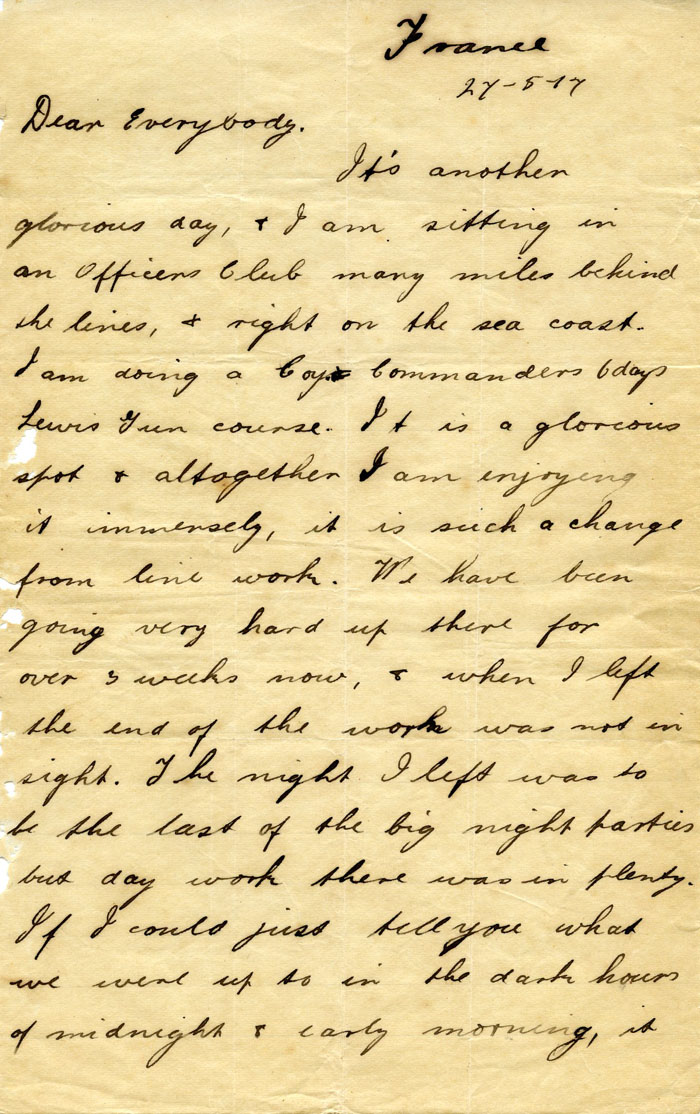 France
27-5-17
Dear Everybody.
It's another
glorious day, & I am sitting in
an Officers Club many miles behind
the lines, & right on the sea coast.
I am doing a Coy. Commanders 6 days
Lewis Gun course. It is a glorious
spot & altogether I am enjoying
it immersely, it is such a change
from line work. We have been
going very hard up there for
over 3 weeks now, & when I left
the end of the work was not in
sight. The night I left was to
be the last of the big night parties
but day work there was in plenty.
If I could just tell you what
we were up to in the dark hours
of midnight & early morning, it